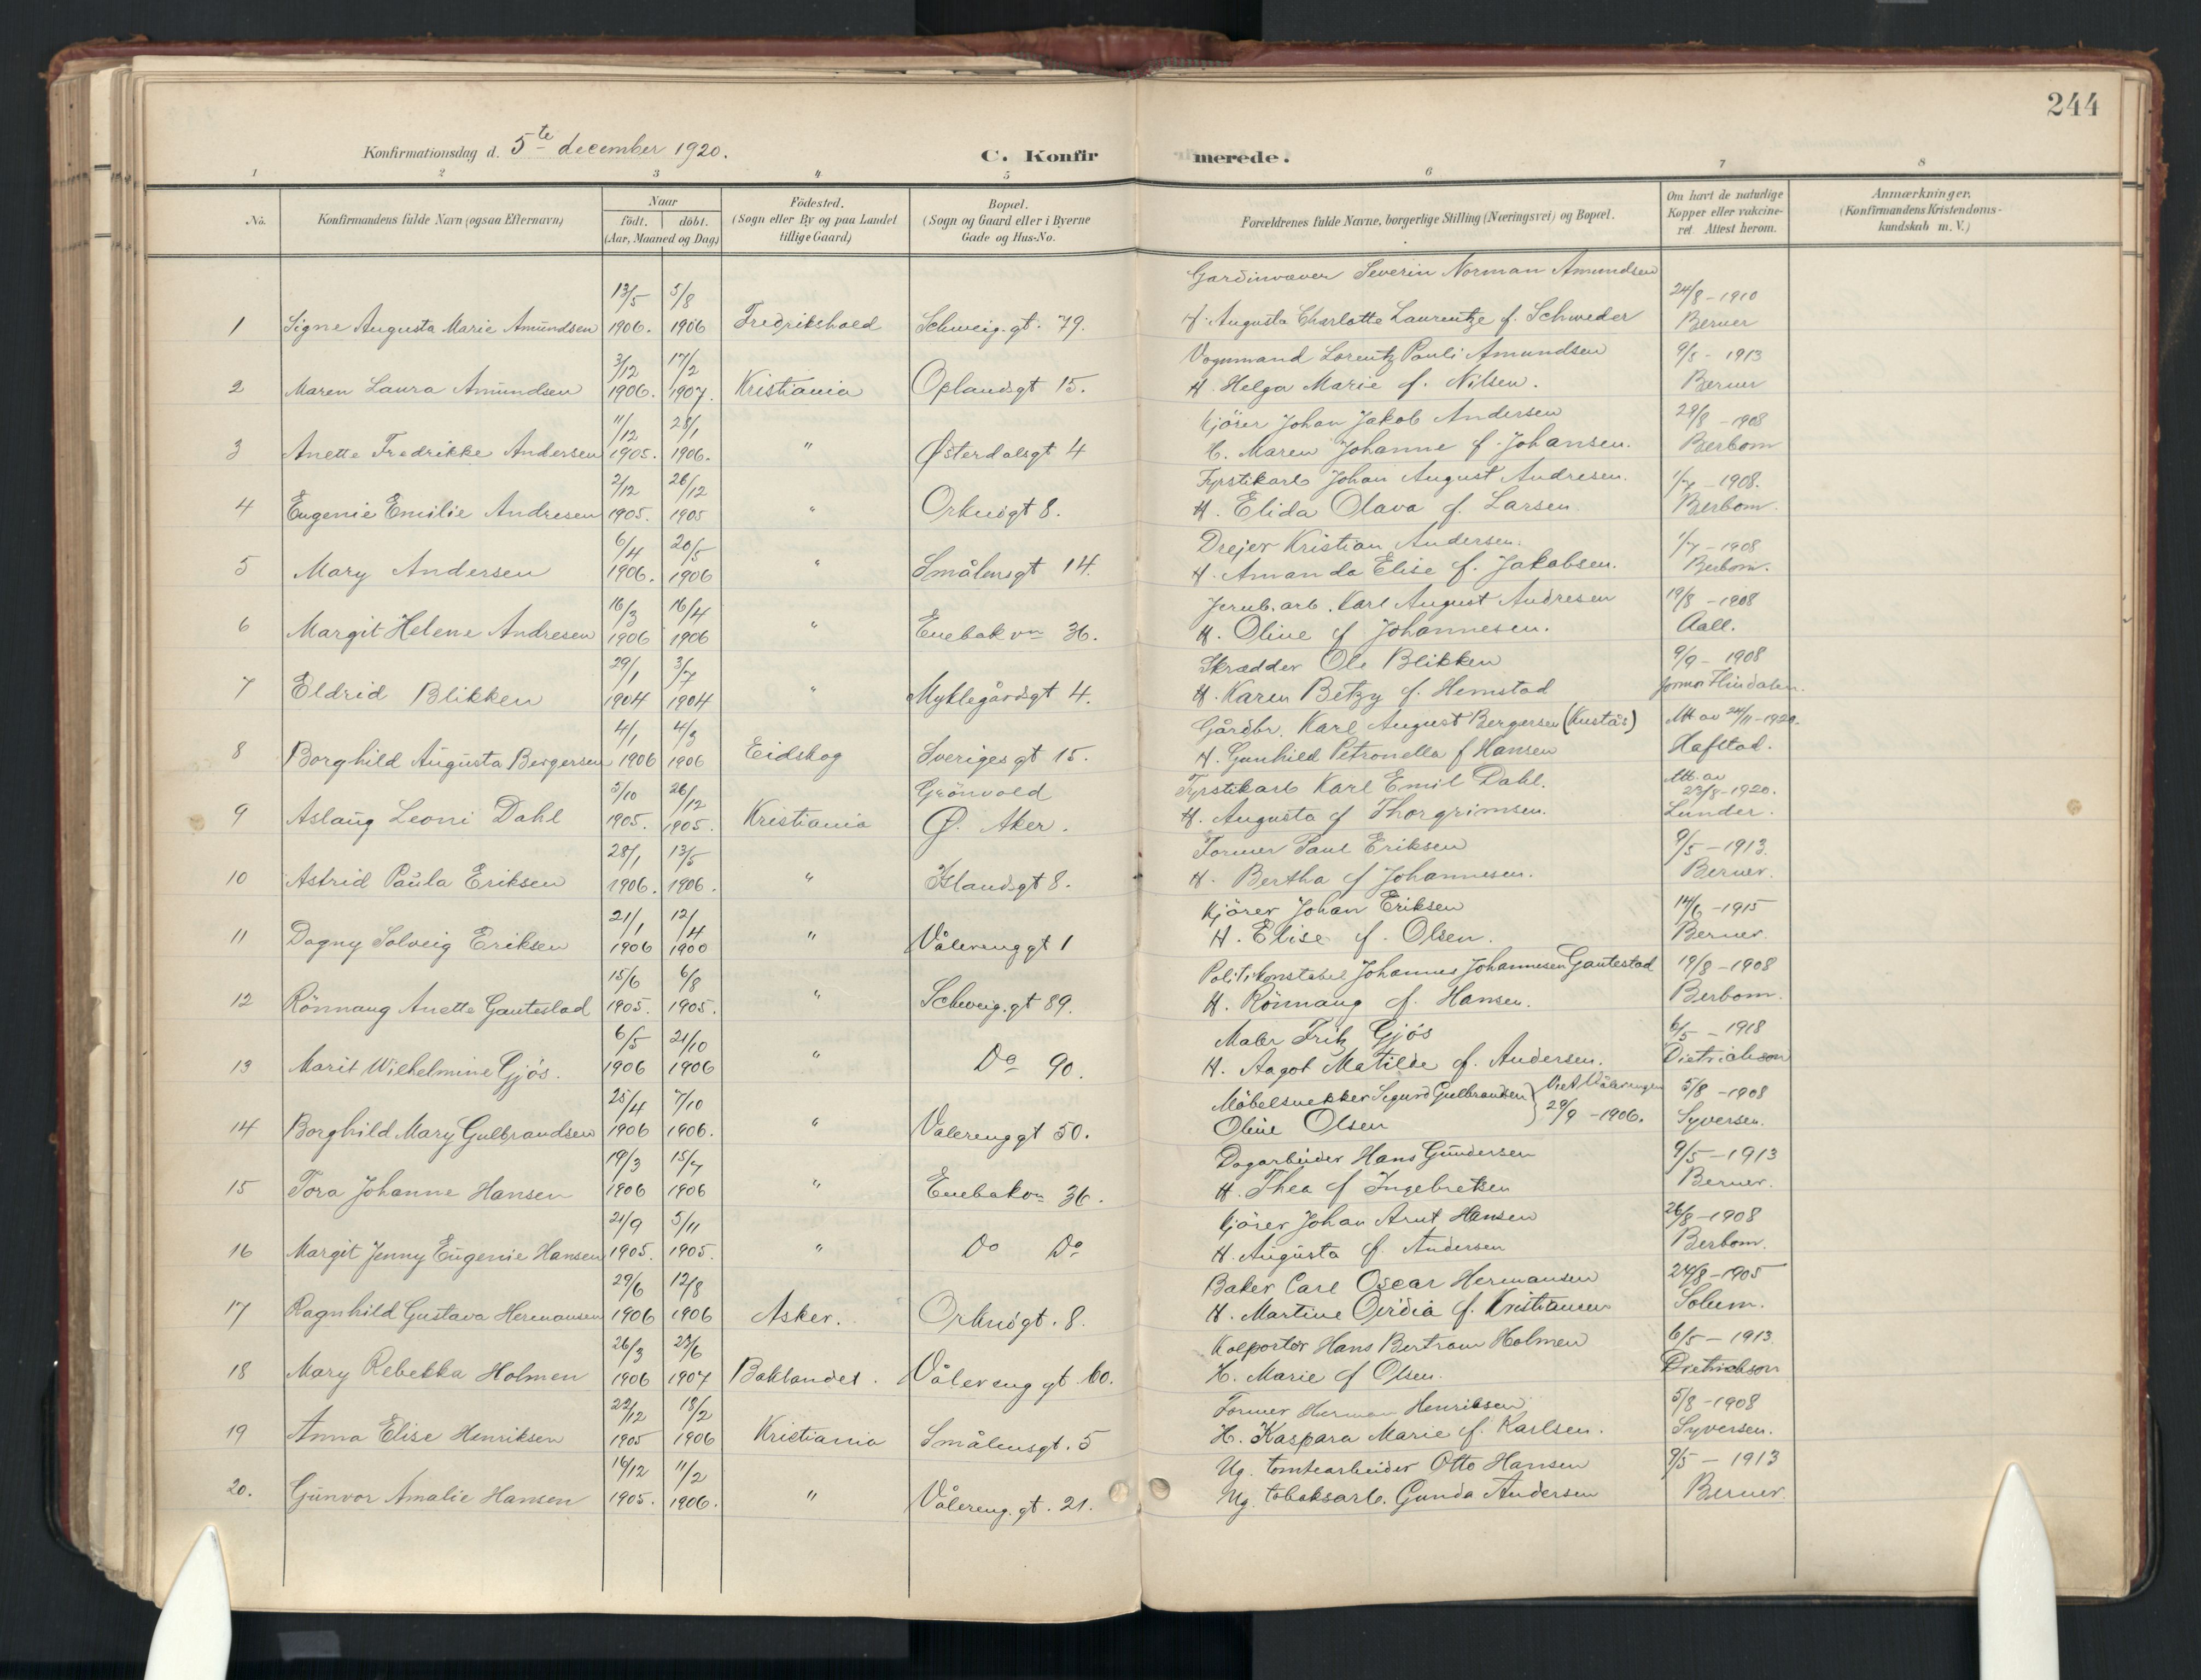 244
Konfirmationsdag d. 5te december 1920.
C. Konfirmerede.
1 2 3 4 5 6 7 8
No. Konfirmandens fulde Navn (ogsaa Efternavn) Naar födt. döbt. (Aar, Maaned og Dag) Födested. (Sogn eller By og paa Landet tillige Gaard) Bopæl. (Sogn og Gaard eller i Byerne Gade og Hus-No. Forældrenes fulde Navne, borgerlige Stilling (Næringsvei) og Bopæl. Om havt de naturlige Kopper eller vakcineret Attest herom. Anmærkninger. (Konfirmandens Kristendomskundskab m. V.)
13/5 5/8 Gardinvæver Severin Norman Amundsen 24/8 - 1910
1 Signe Augusta Marie Amundsen 1906. 1906 Fredrikshald Schweig. gt. 79. H. Augusta Charlotte Laurentze f. Schweder Berner
3/12 17/2 Vognmand Lorentz Pauli Amundsen 9/5 - 1913
2 Maren Laura Amundsen 1906. 1907. Kristiania Oplandsgt 15. H. Helga Marie f. Nilsen. Berner
11/12 28/1 Kjörer Johan Jakob Andersen 29/8 - 1908
3 Anette Fredrikke Andersen 1905. 1906. " Østerdalsgt 4 H. Maren Johanne f. Johansen. Berbom
2/12 26/12 Fyrstikarb Johan August Andresen. 1/7 - 1908.
4 Eugenie Emilie Andresen 1905. 1905 " Orknögt 8. H. Elida Olava f. Larsen. Berbom.
6/4 20/5 Drejer Kristian Andersen. 1/7 - 1908
5 Mary Andersen 1906. 1906 " Smålensgt 14. H. Amanda Elise f. Jakobsen. Berbom.
16/3 16/4 Jernb. arb. Karl August Andresen 19/8 - 1908
6 Margit Helene Andresen 1906 1906 " Enebakvn 36. H. Oline f Johannesen. Aall.
29/1 3/7 Skrædder Ole Blikken 9/9 - 1908
7 Eldrid Blikken 1904 1904 " Myklegårdsgt 4. H. Karen Betzy f. Hemstad
4/1 4/3 Gårdbr. Karl August Bergersen (Kustås) Att av 24/11-1920.
8 Borghild Augusta Bergersen 1906 1906 Eidskog Sverigesgt 15. H. Gunhild Petronella f Hansen Hafstad.
5/10 26/12 Grönvold Fyrstikarb Karl Emil Dahl. Att. av 23/8-1920.
9 Aslaug Leoni Dahl 1905. 1905. Kristiania Ø. Aker. H. Augusta f Thorgrimsen. Lunder.
28/1 13/5 Former Paul Eriksen 9/5 - 1913.
10 Astrid Paula Eriksen 1906. 1906. " Islandsgt 8. H. Bertha f Johannesen. Berner.
21/1 12/4 Kjörer Johan Eriksen 14/6 - 1915
11 Dagny Solveig Eriksen 1906 1900 " Vålerenggt 1 H. Elise f. Olsen. Berner.
15/6 6/8 Politikonstabel Johannes Johannesen Gautestad 19/8 - 1908
12 Rönnaug Anette Gautestad 1905. 1905. " Schweig. gt 89. H. Rönnaug f. Hansen. Berbom.
6/5 21/10 Maler Fritz Gjös 6/5 - 1918
13 Marit Wilhelmine Gjös. 1906 1906 " Do 90. H. Aagot Matilde f. Andersen. Dietrichson
25/4 7/10 Möbelsnekker Sigurd Gulbrandsen } Viet Vålerengen 5/8 - 1908
14 Borghild Mary Gulbrandsen 1906 1906. " Valerenggt 50. Oline Olsen } 29/9 - 1906. Syversen.
19/3 15/7 Dagarbeider Hans Gundersen 9/5 - 1913
15 Tora Johanne Hansen 1906 1906 " Enebakvn 36. H. Thea f Ingebretsen Berner.
21/9 5/11 Kjörer Johan Arnt Hansen 26/8 - 1908
16 Margit Jenny Eugenie Hansen 1905. 1905. " Do Do H. Augusta f. Andersen Berbom.
29/6 12/8 Baker Carl Oscar Hermansen 24/8 - 1905
17 Ragnhild Gustava Hermansen 1906 1906 Asker. Orknögt. 8. H. Martine f. Kristiansen Solum.
26/3 23/6 Kolportör Hans Bertram Holmen 6/5 - 1913.
18 Mary Rebekka Holmen 1906 1907 Baklandet. Vålereng gt 60. H. Marie f Olsen. Dietrichson
22/12 18/2 Former Herman Henriksen 5/8 - 1908
19 Anna Elise Henriksen 1905 1906 Kristiania Smålensgt. 5 H. Kaspara Marie f. Karlsen. Syversen.
16/12 11/2 Ug. tomtearbeider Otto Hansen 9/5 - 1913
20. Gunvor Amalie Hansen 1905. 1906. " Vålereng. gt. 21. Ug. tobaksarb. Gunda Andersen Berner.